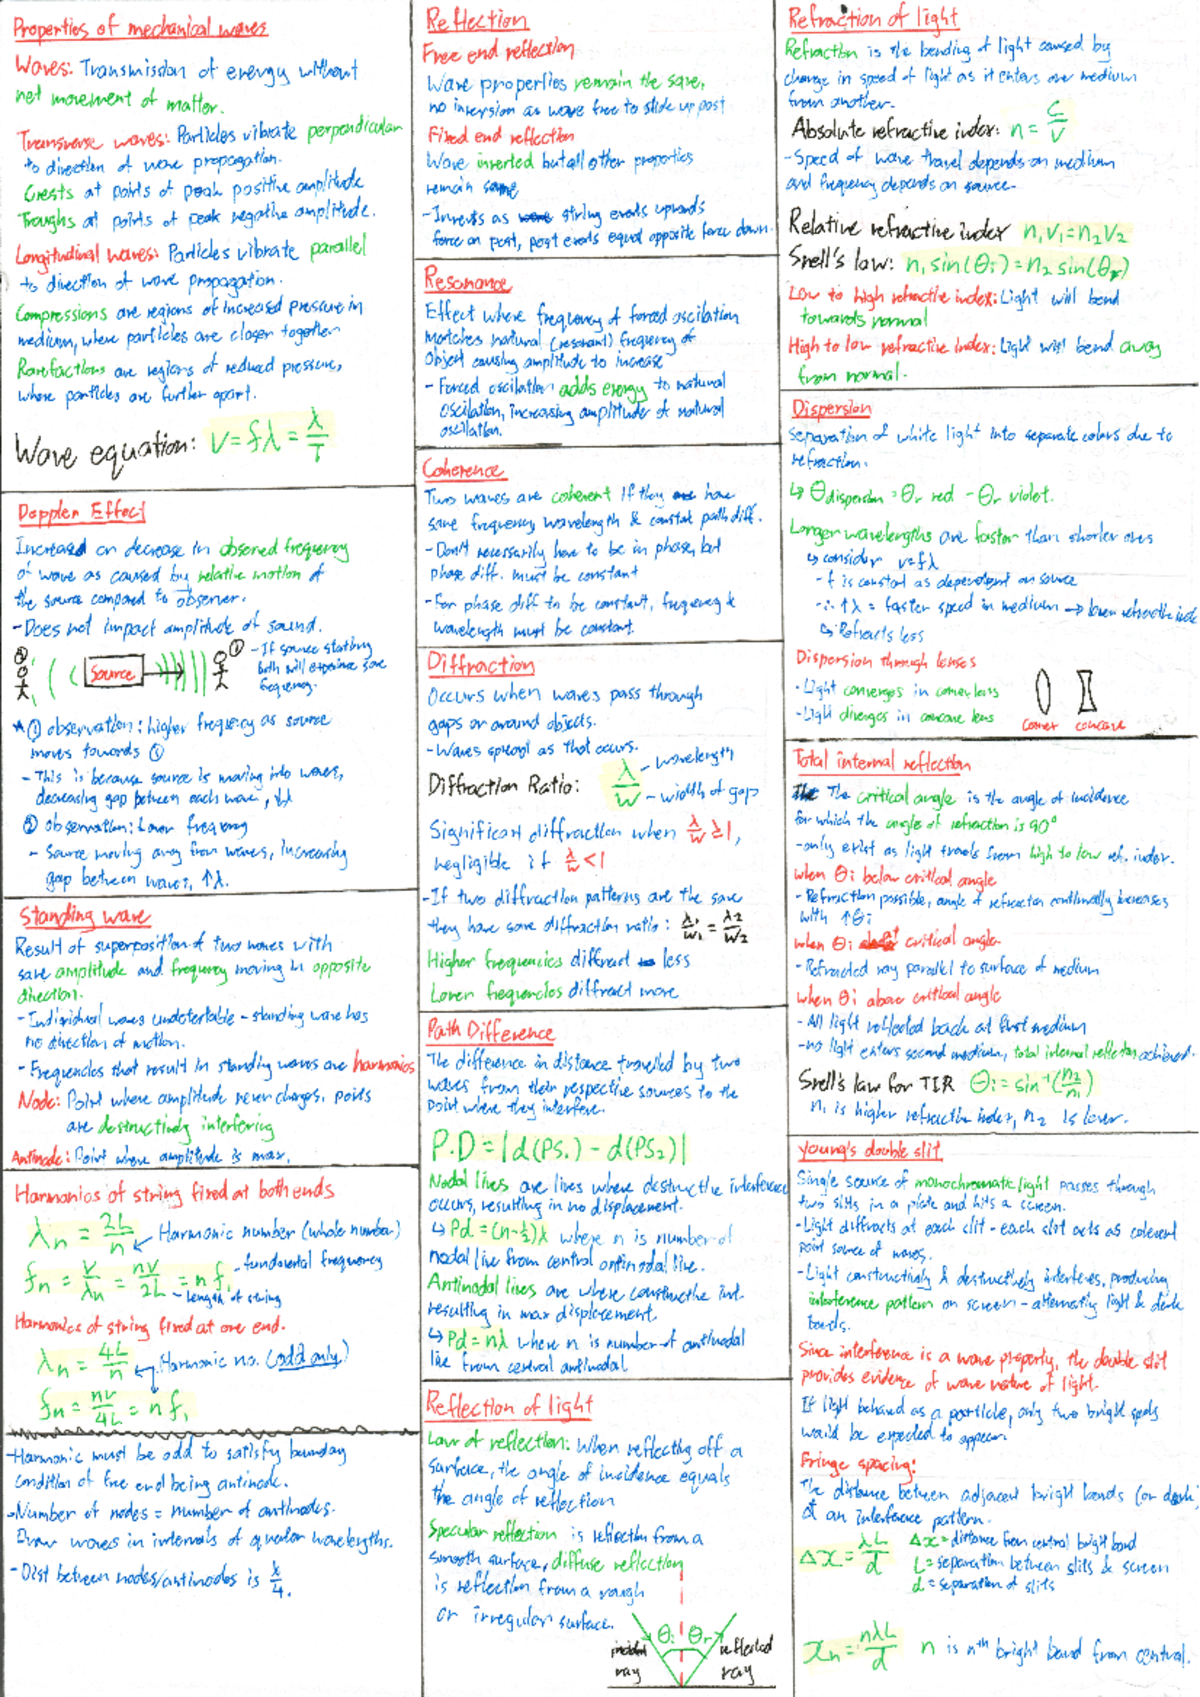 Properties of mechanical waves
Waves: Transmission of energy without
net movement of matter.
Transverse waves: Particles vibrate perpendicular
to direction of wave propagation.
Crests at points of peak positive amplitude
Troughs at points of peak negative amplitude.
Longitudinal waves: Particles vibrate parallel
to direction of wave propagation.
Compressions are regions of increased pressure in
medium, where particles are closer together
Rarefactions are regions of reduced pressure,
where particles are further apart.
Wave equation: v = fλ = λ/T
Doppler Effect
Increased or decrease in observed frequency
of wave as caused by relative motion of
the source compared to observer.
- Does not impact amplitude of sound.
② Source ① - If source stationary
both will experience same
frequency.
* ① observation: higher frequency as source
moves towards ①
- This is because source is moving into waves,
decreasing gap between each wave, ↓λ
② observation: Lower frequency
- Source moving away from waves, increasing
gap between waves, ↑λ.
Standing wave
Result of superposition of two waves with
same amplitude and frequency moving in opposite
direction.
- Individual waves undetectable - standing wave has
no direction of motion.
- Frequencies that result in standing waves are harmonics
Node: Point where amplitude never changes. points
are destructively interfering
Antinode: Point where amplitude is max.
Harmonics of string fixed at both ends
λn = 2L/n Harmonic number (whole number)
fn = v/λn = nv/2L = nf₁ - fundamental frequency
- length of string
Harmonics of string fixed at one end.
λn = 4L/n Harmonic no. (odd only)
fn = nv/4L = nf₁
- Harmonic must be odd to satisfy boundary
condition of free end being antinode.
- Number of nodes = number of antinodes.
Draw waves in intervals of quarter wavelengths.
- Dist between nodes/antinodes is λ/4.
Reflection
Free end reflection
Wave properties remain the same,
no inversion as wave free to slide up post
Fixed end reflection
Wave inverted but all other properties
remain same
- Inverts as string exerts upwards
force on post, post exerts equal opposite force down.
Resonance
Effect where frequency of forced oscilation
matches natural (resonant) frequency of
object causing amplitude to increase
- Forced oscilation adds energy to natural
oscilation, increasing amplitude of natural
oscilation.
Coherence
Two waves are coherent if they have
same frequency, wavelength & constat path diff.
- Don't necessarily have to be in phase, but
phase diff. must be constant
- For phase diff to be constant, frequency &
wavelength must be constant.
Diffraction
Occurs when waves pass through
gaps or around objects.
- Waves spread as that occurs.
Diffraction Ratio: λ/w - wavelength
- width of gap
Significant diffraction when λ/w ≥ 1,
negligible if λ/w < 1
- If two diffraction patterns are the same
they have same diffraction ratio: λ₁/w₁ = λ₂/w₂
Higher frequencies diffract less
Lower frequencies diffract more
Path Difference
The difference in distance travelled by two
waves from their respective sources to the
point where they interfere.
P.D = |d(PS₁) - d(PS₂)|
Nodal lines are lines where destructive interference
occurs, resulting in no displacement.
↳ Pd = (n-½)λ where n is number of
nodal line from central antinodal line.
Antinodal lines are where constructive int.
resulting in max displacement.
↳ Pd = nλ where n is number of antinodal
line from central antinodal
Reflection of light
Law of reflection: When reflecting off a
surface, the angle of incidence equals
the angle of reflection
Specular reflection is reflection from a
smooth surface, diffuse reflection
is reflection from a rough
or irregular surface.
θi θr
incident ray
reflected ray
Refraction of light
Refraction is the bending of light caused by
change in speed of light as it enters one medium
from another.
Absolute refractive index: n = c/v
- Speed of wave travel depends on medium
and frequency depends on source.
Relative refractive index n₁v₁ = n₂v₂
Snell's law: n₁ sin(θi) = n₂ sin(θr)
Low to high refractive index: Light will bend
towards normal
High to low refractive index: Light will bend away
from normal.
Dispersion
Separation of white light into separate colors due to
refraction.
↳ θdispersion = θr red - θr violet.
Longer wavelengths are faster than shorter ones
↳ consider v = fλ
- f is constat as dependent on source
- ∴ ↑λ = faster speed in medium → lower refractive index
↳ Refracts less
Dispersion through lenses
- Light converges in convex lens
- Light diverges in concave lens
convex concave
Total internal reflection
The critical angle is the angle of incidence
for which the angle of refraction is 90°
- only exist as light travels from high to low ref. index.
when θi below critical angle
- Refraction possible, angle of refraction continually increases
with ↑θi
when θi at critical angle.
- Refracted ray parallel to surface of medium
when θi above critical angle
- All light reflected back at first medium
- no light enters second medium, total internal reflection achieved.
Snell's law for TIR θi = sin⁻¹(n₂/n₁)
n₁ is higher refractive index, n₂ is lower.
Young's double slit
Single source of monochromatic light passes through
two slits in a plate and hits a screen.
- Light diffracts at each slit - each slot acts as coherent
point source of waves.
- Light constructively & destructively interferes, producing
interference pattern on screen - alternating light & dark
bands.
Since interference is a wave property, the double slit
provides evidence of wave nature of light.
If light behaved as a particle, only two bright spots
would be expected to appear.
Fringe spacing:
The distance between adjacent bright bands (or dark)
of an interference pattern.
Δx = λL/d Δx = distance from central bright band
L = separation between slits & screen
d = separation of slits
xn = nλL/d n is nth bright band from central.